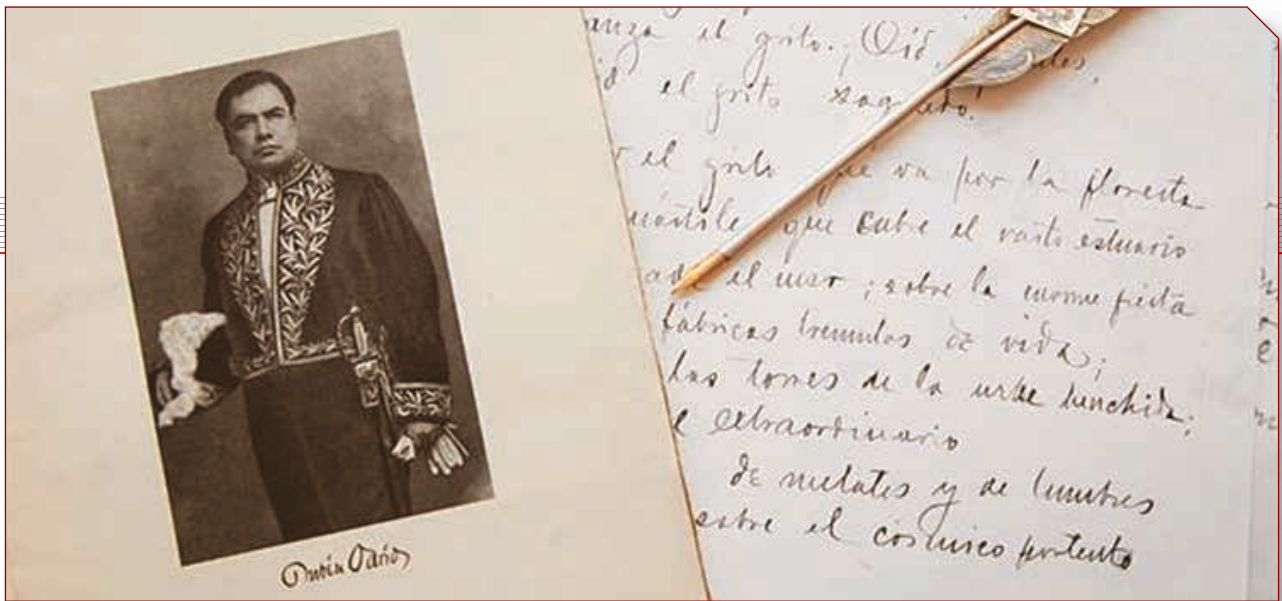 anza el grito: ¡Oíd,
el grito sagrado!
el grito que va por la floresta
que cubre el vasto estuario
ade el mar; sobre la enorme fiesta
fábricas tremulas de vida;
las torres de la urbe henchida;
extraordinario
de metales y de lumbres
sobre el cósmico portento
Rubén Darío